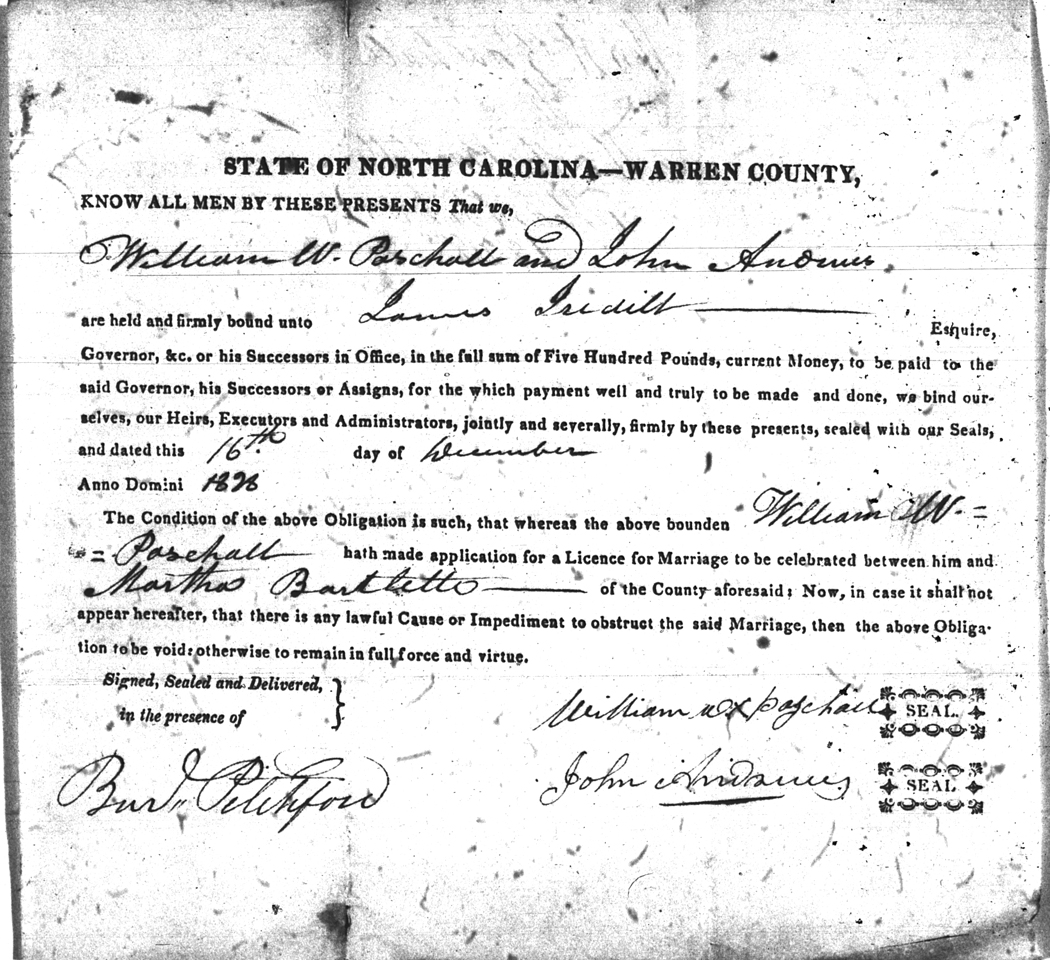 STATE OF NORTH CAROLINA—WARREN COUNTY,
KNOW ALL MEN BY THESE PRESENTS That we,
William W. Paschall and John Andrews.
James Iredell
are held and firmly bound unto Esquire,
Governor, &c. or his Successors in Office, in the full sum of Five Hundred Pounds, current Money, to be paid to the
said Governor, his Successors or Assigns, for the which payment well and truly to be made and done, we bind our-
selves, our Heirs, Executors and Administrators, jointly and severally, firmly by these presents, sealed with our Seals,
and dated this 16th. day of December
Anno Domini 1828
The Condition of the above Obligation is such, that whereas the above bounden William W. =
= Paschall hath made application for a Licence for Marriage to be celebrated between him and
Martha Bartlett of the County aforesaid: Now, in case it shall not
appear hereafter, that there is any lawful Cause or Impediment to obstruct the said Marriage, then the above Obliga-
tion to be void: otherwise to remain in full force and virtue.
Signed, Sealed and Delivered,
in the presence of
William W Paschall SEAL
Pitchford
John Andrews SEAL